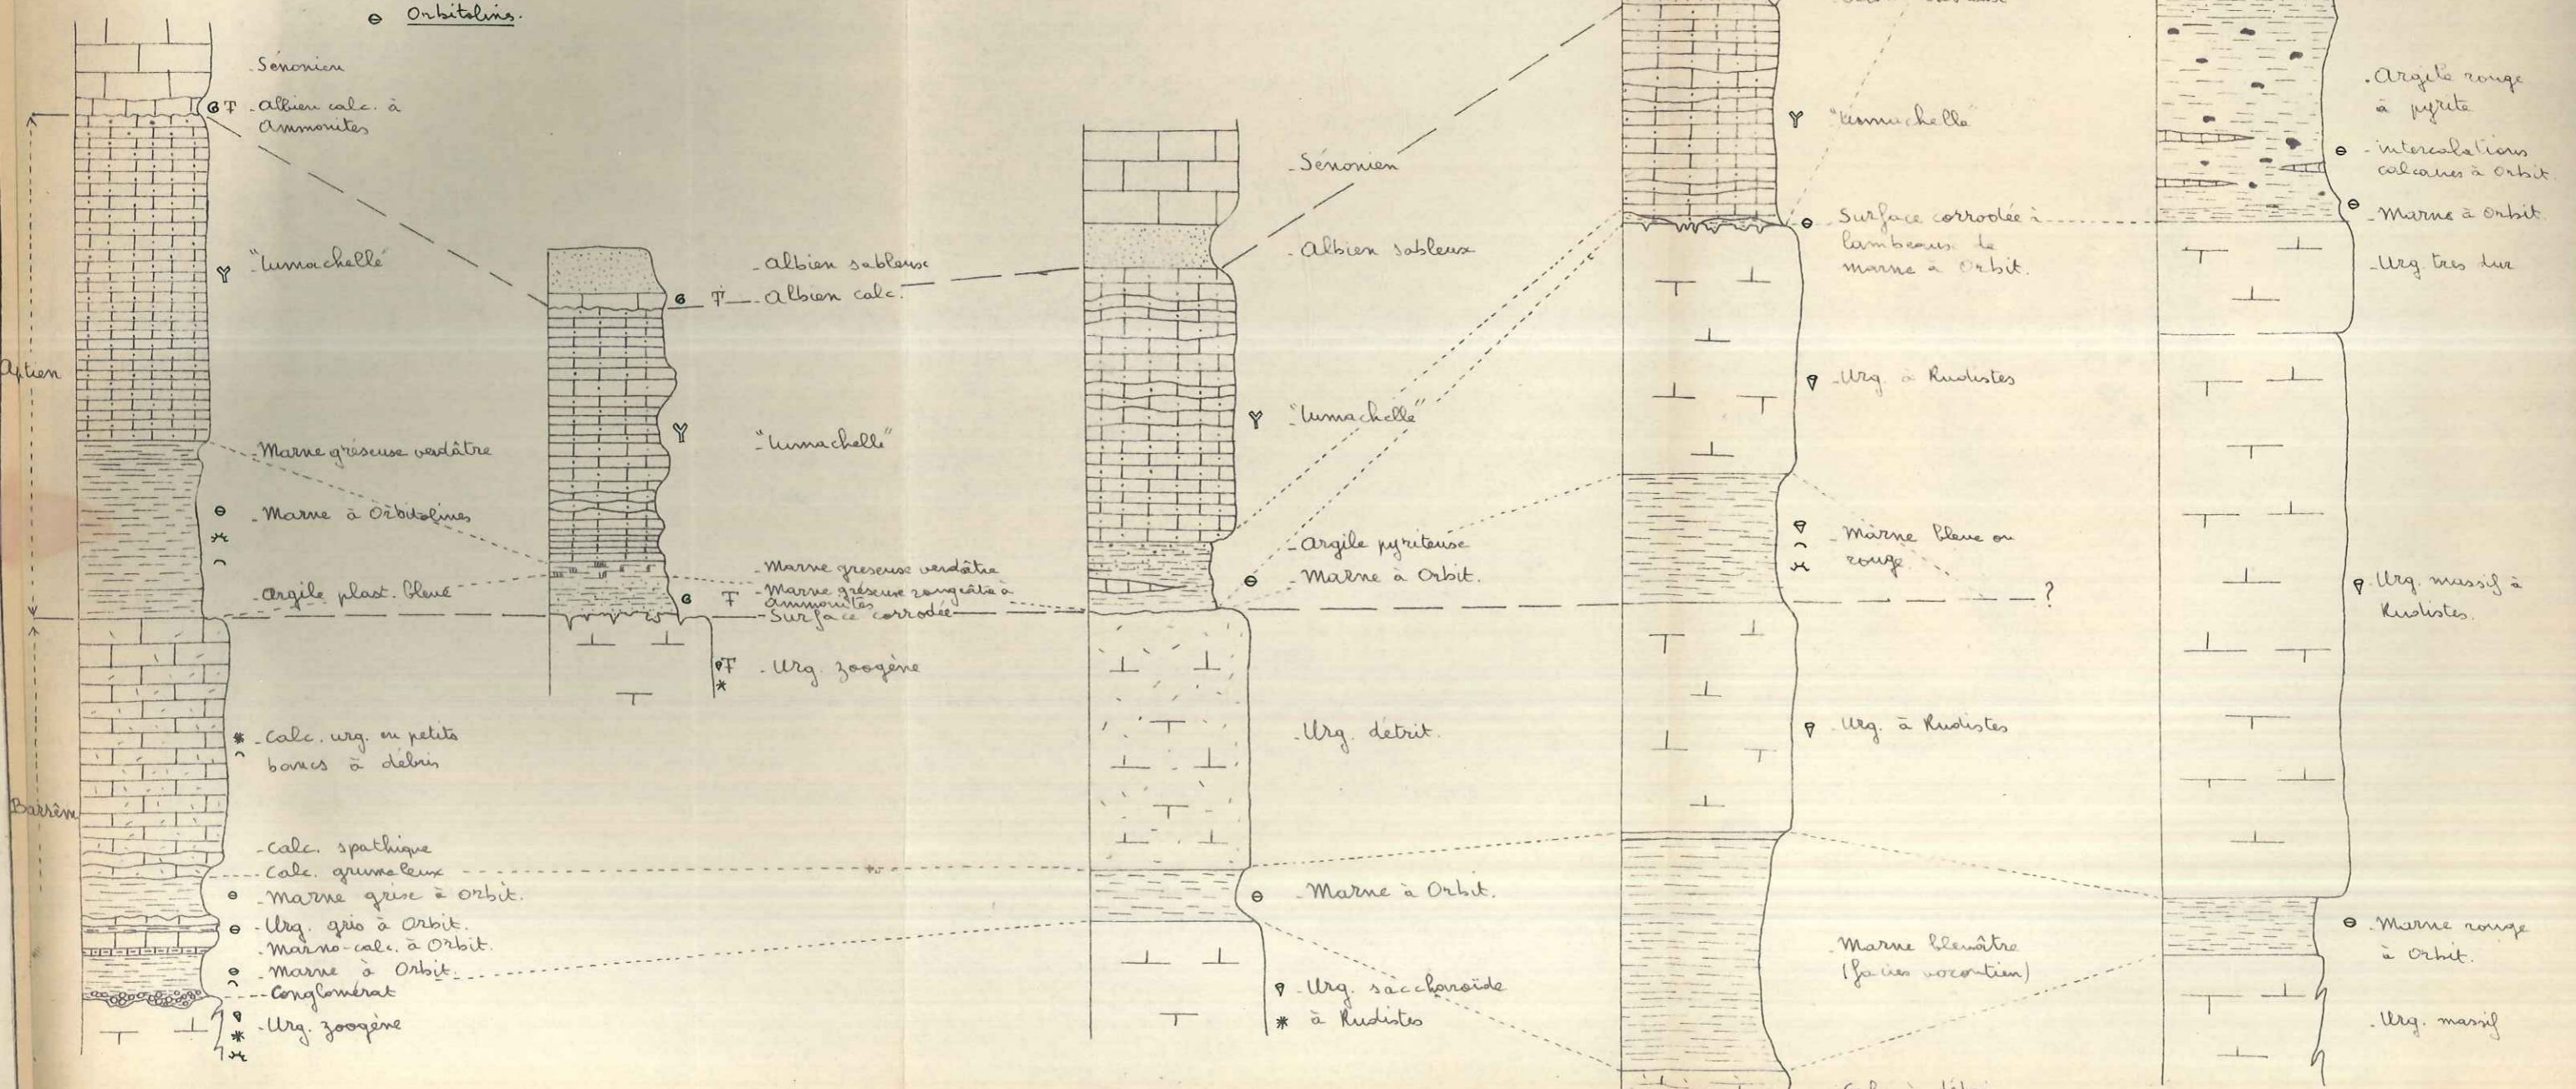 Orbitolins.
- Sénonien
- Albien calc. à
Ammonites
Aptien
- "Lumachelle"
- Marne gréseuse verdâtre
- Marne à Orbitolines
- Argile plast. bleue
Barrêm
- Calc. urg. en petits
bancs à débris
- Calc. spathique
- Calc. grumeleux
- Marne grise à Orbit.
- Urg. gris à Orbit.
- Marno-calc. à Orbit.
- Marne à Orbit.
- Conglomérat
- Urg. zoogène
- Albien sableux
- Albien calc.
- "Lumachelle"
- Marne greseuse verdâtre
- Marne gréseuse rougeâtre à
Ammonites
- Surface corrodée
- Urg. zoogène
- Sénonien
- Albien sableux
- "Lumachelle"
- Argile pyriteuse
- Marne à Orbit.
- Urg. détrit.
- Marne à Orbit.
- Urg. saccharoïde
à Rudistes
- "Lumachelle"
- Surface corrodée à
lambeaux de
marne à Orbit.
- Urg. à Rudistes
- Marne bleue ou
rouge
?
- Urg. à Rudistes
- Marne bleuâtre
(facies vocontien)
- Argile rouge
à pyrite
- intercalations
calcaires à Orbit.
- Marne à Orbit.
- Urg. tres dur
- Urg. massif à
Rudistes.
- Marne rouge
à Orbit.
- Urg. massif